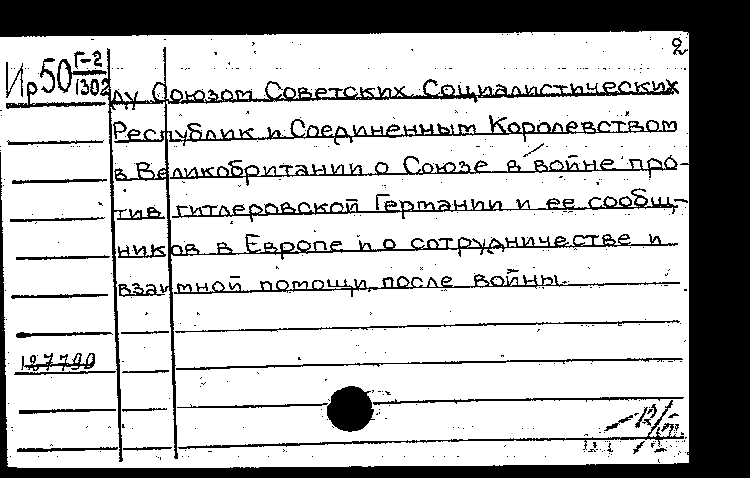 2
Ир50 Г-2/1302
ду Союзом Советских Социалистических
Республик и Соединенным Королевством
в Великобритании о Союзе в войне про-
тив гитлеровской Германии и ее сообщ-
ников в Европе и о сотрудничестве и
взаимной помощи после войны.
127790
12/